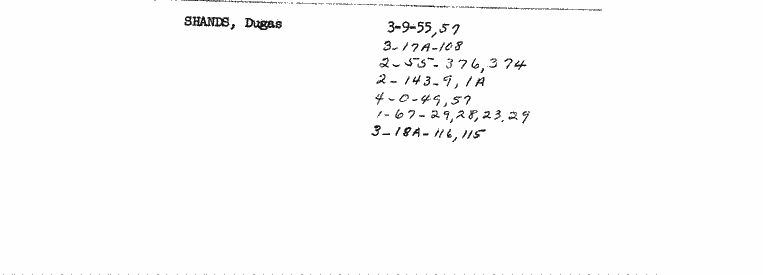 SHANDS, Dugas 3-9-55,57
3-17A-108
2-55-376,374
2-143-9,1A
4-0-49,57
1-67-29,28,23,29
3-18A-116,115